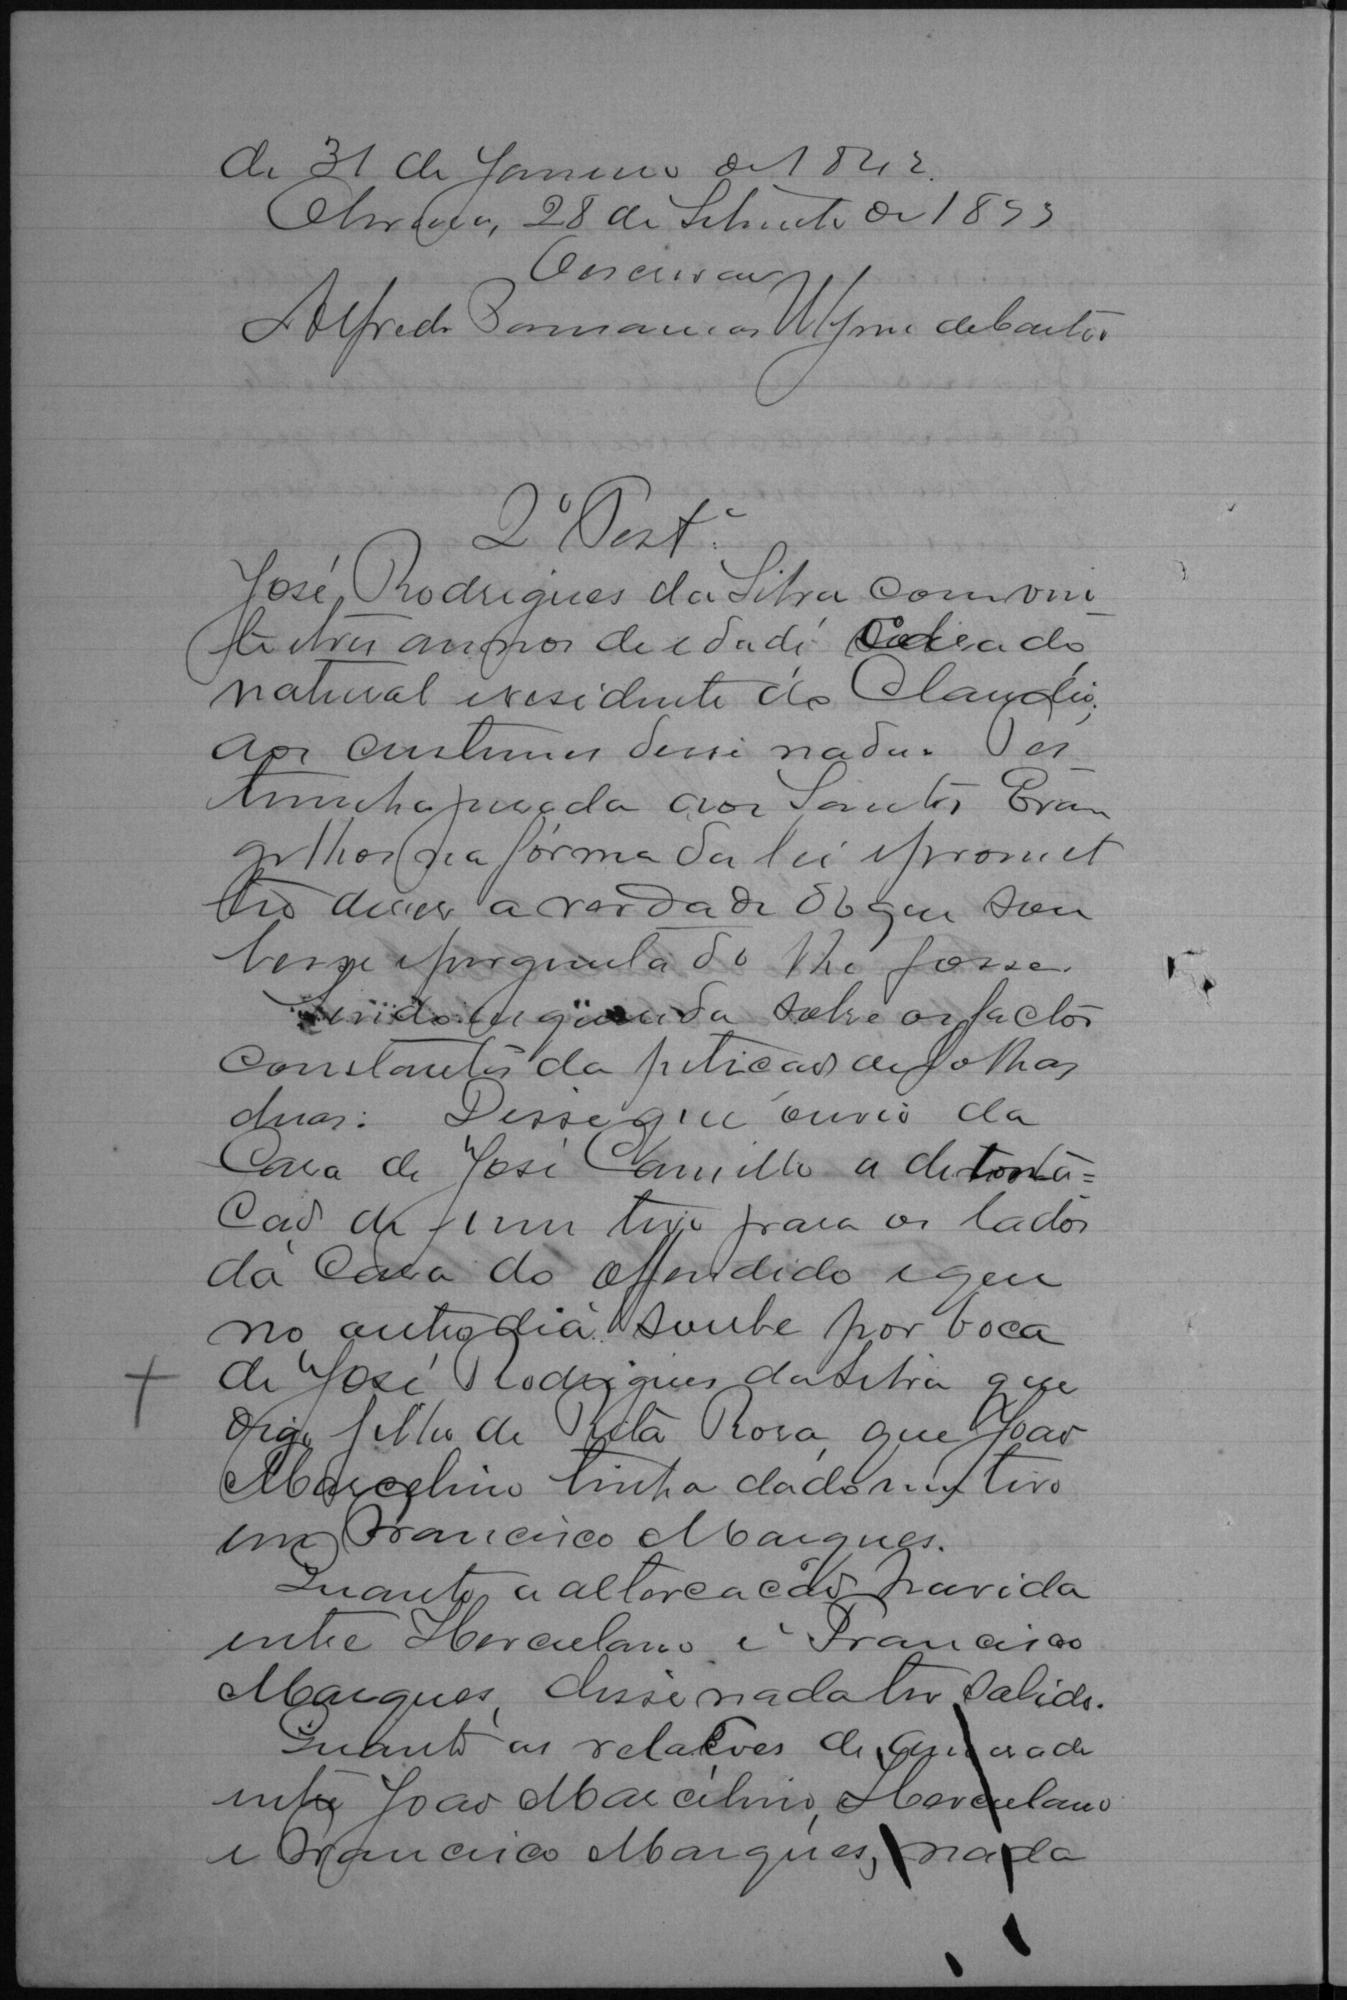 de 31 de Janeiro de 1842.
28 de Setembro de 1893
O escrivão
Alfredo de Castro
2ª Test.ª
José Rodrigues da Silva com vin
te e tres annos de edade
natural e residente do Claudio,
aos custumes disse nada. Tes
timunha jurada aos Santos Evan
gelhos na fórma da lei e promet
teo dizer a verdade do que sou
besse e perguntado lhe fosse.
Sendo inquirida sobre os factos
constantes da peticao de folhas
duas: Disse que ouvio da
Casa de José Camillo a detona=
cao de um tiro para os lados
da Casa do offendido e que
no outro dia soube por boca
de José Rodrigues da Silva que
digo filho de Rita Rosa, que Joao
Marcelino tinha dado um tiro
em Francisco Marques.
Quanto a altercacão havida
entre Herculano e Francisco
Marques, disse nada ter sabido.
Quanto as relacões de amisade
entre Joao Marcelino, Herculano
e Francisco Marques, nada